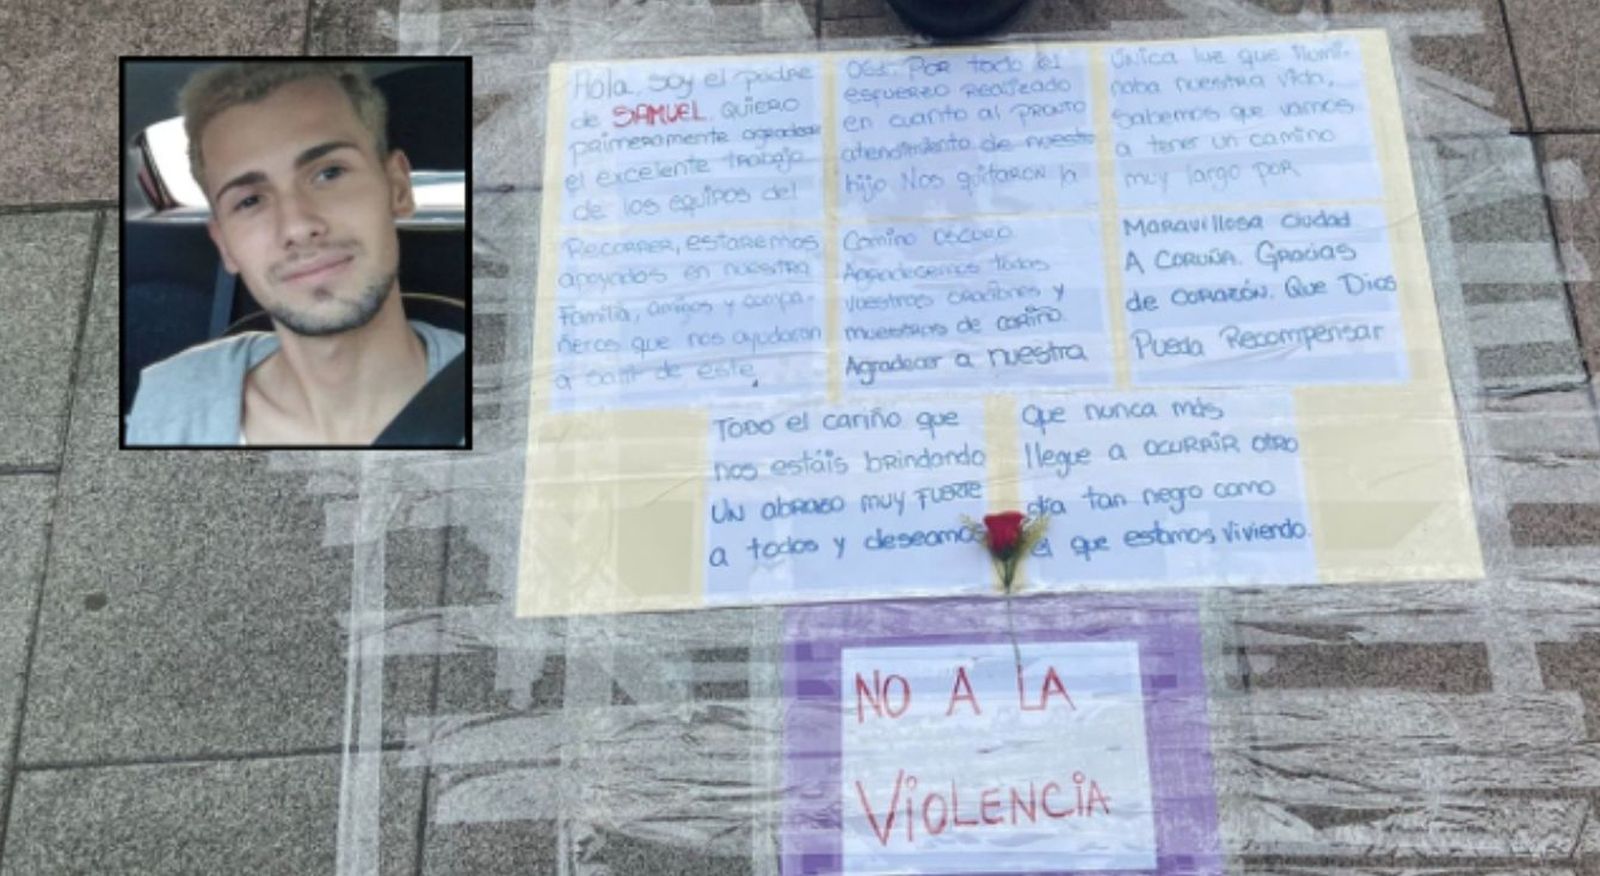 Hola, soy el padre
de SAMUEL. QUIERO
primeramente agradecer
el excelente trabajo
de los equipos del
061. Por todo el
esfuerzo realizado
en cuanto al pronto
atendimiento de nuestro
hijo Nos quitaron la
única luz que ilumi-
naba nuestra vida,
sabemos que vamos
a tener un camino
muy largo por
Recorrer, estaremos
apoyados en nuestra
Familia, amigos y compa-
ñeros que nos ayudaran
a salir de este
Camino oscuro.
Agradecemos todas
vuestras oraciones y
muestras de cariño.
Agradecer a nuestra
Maravillosa ciudad
A Coruña. Gracias
de corazón. Que Dios
Pueda Recompensar
Todo el cariño que
nos estáis brindando
Un abrazo muy fuerte
a todos y deseamos
Que nunca más
llegue a ocurrir otro
día tan negro como
el que estamos viviendo.
NO A LA
VIOLENCIA